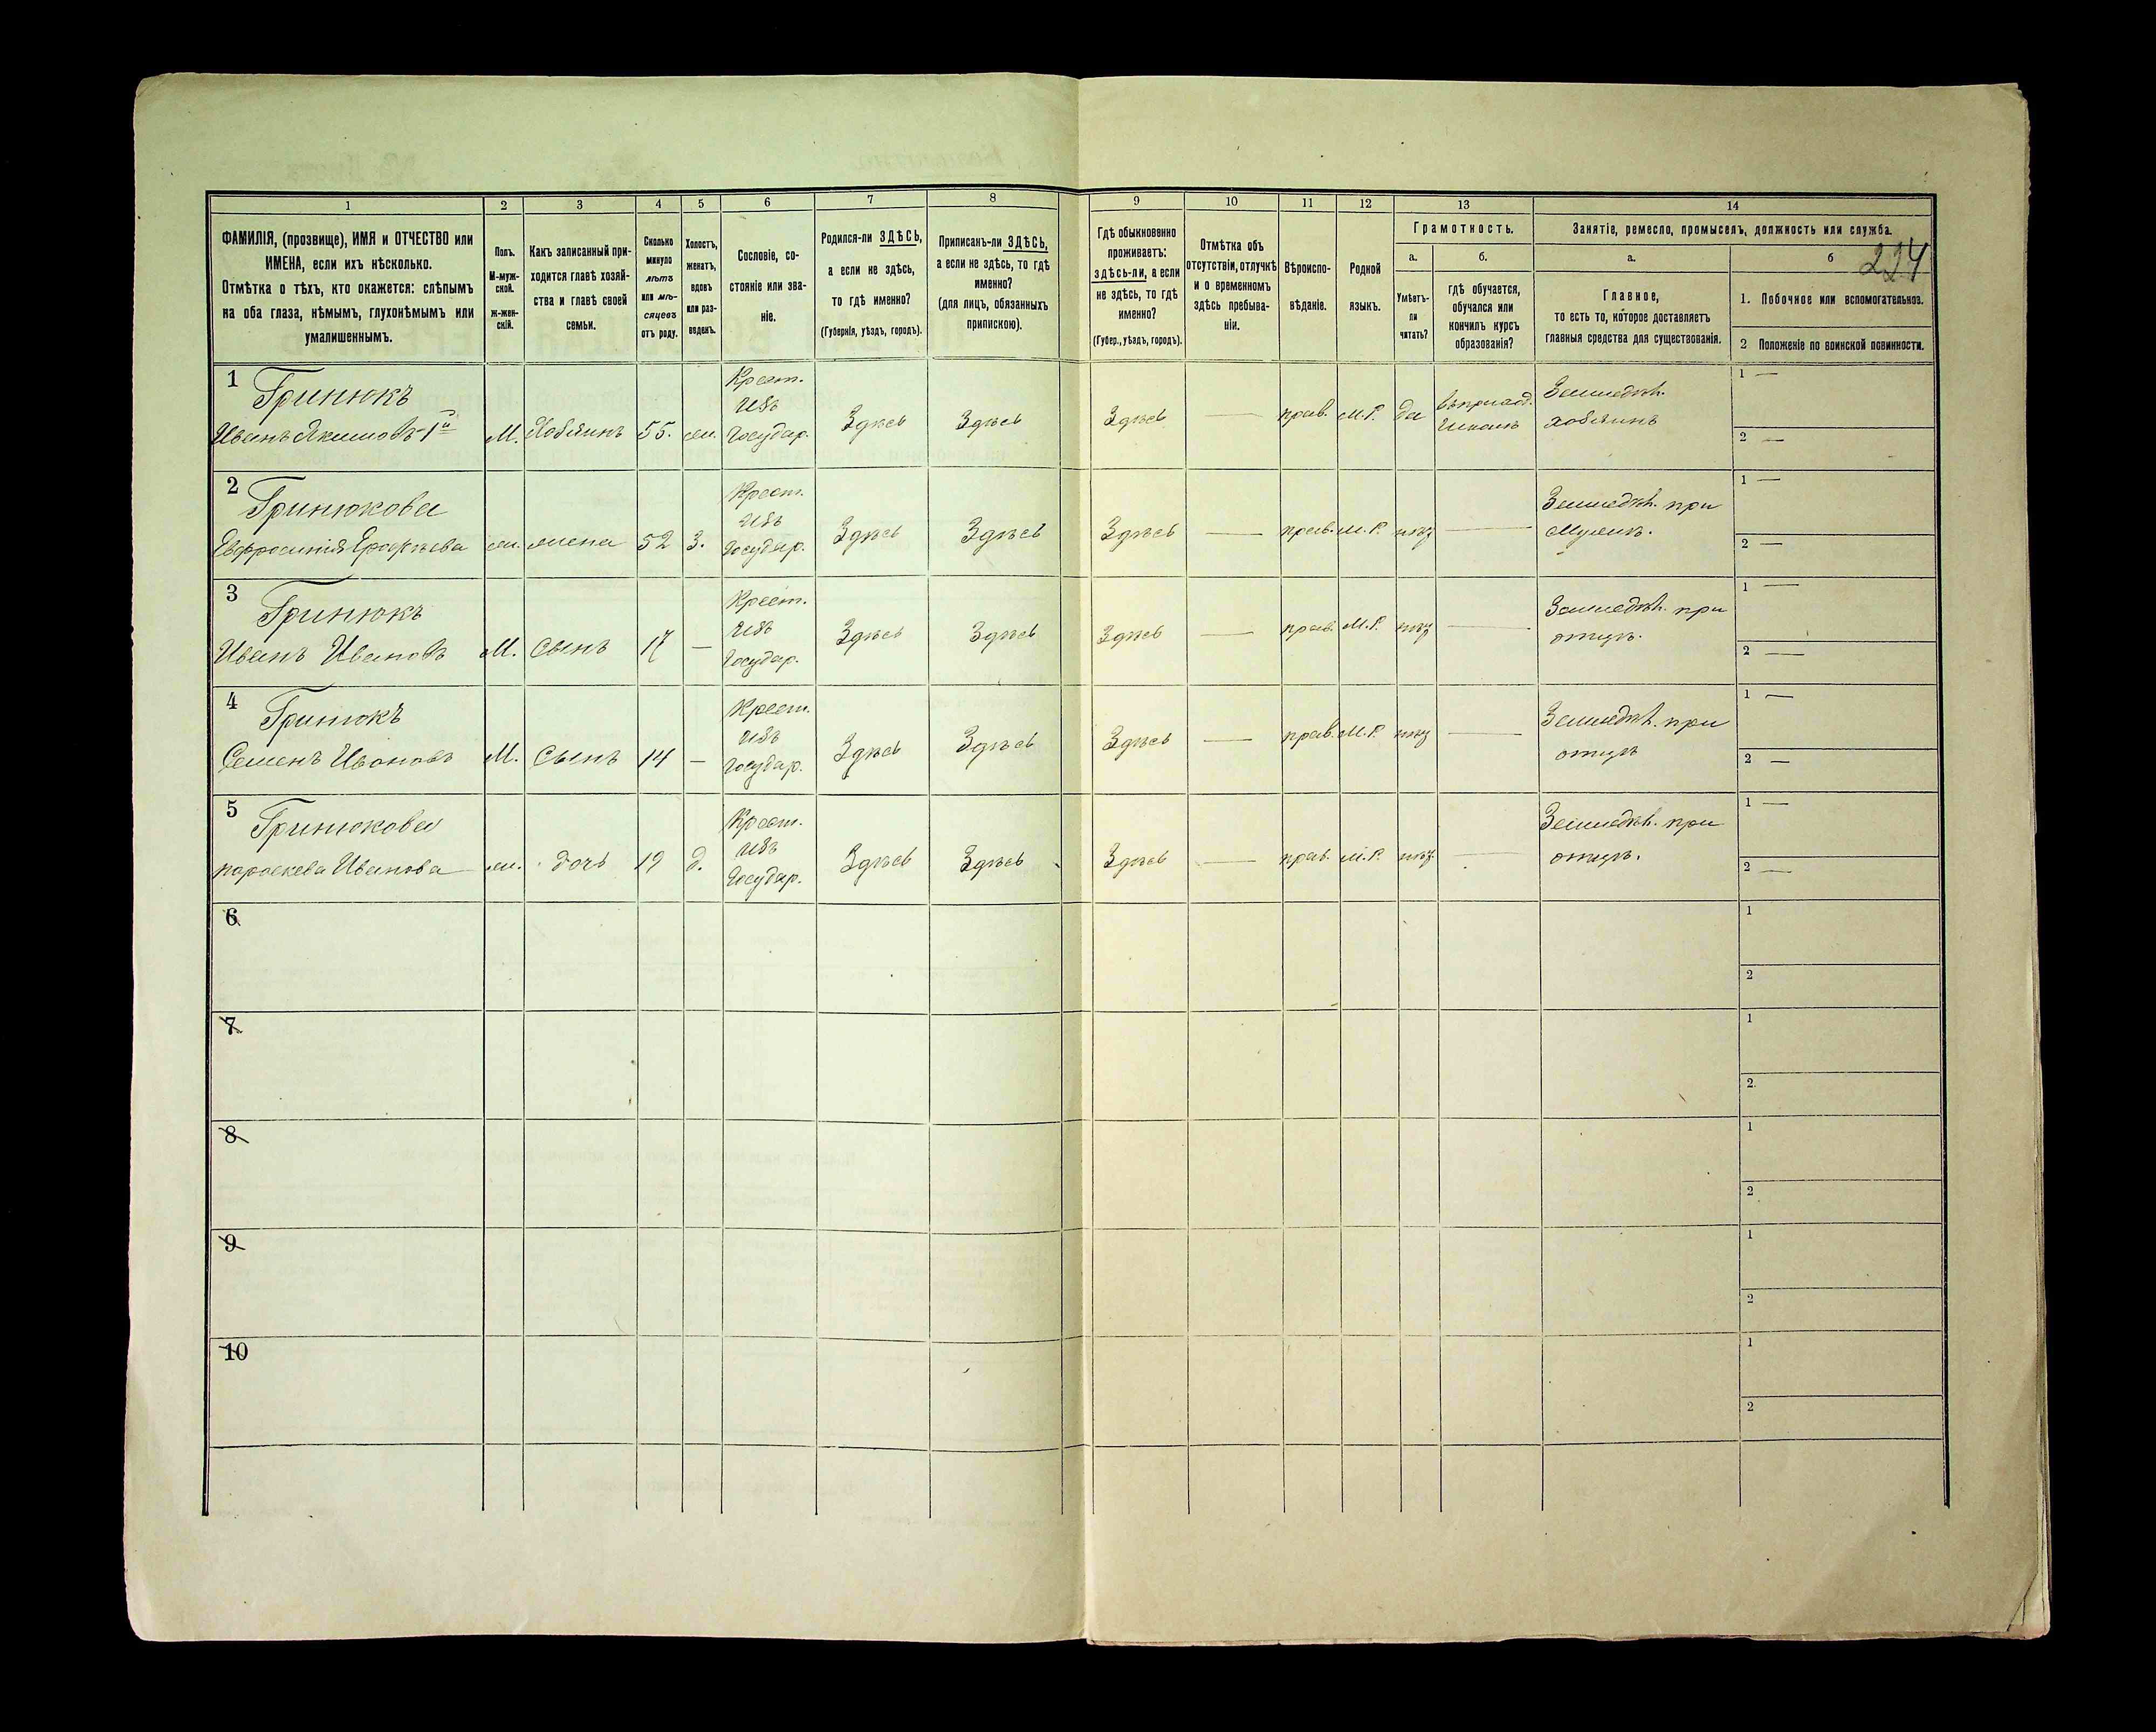 224
1
2
3
4
5
6
7
8
9
10
11
12
13
14
ФАМИЛІЯ, (прозвище), ИМЯ и ОТЧЕСТВО или
ИМЕНА, если ихъ нѣсколько.
Отмѣтка о тѣхъ, кто окажется: слѣпымъ
на оба глаза, нѣмымъ, глухонѣмымъ или
умалишеннымъ.
Полъ.
М-муж-
ской.
Ж-жен-
скій.
Какъ записанный при-
ходится главѣ хозяй-
ства и главѣ своей
семьи.
Сколько
минуло
лѣтъ
или мѣ-
сяцевъ
отъ роду.
Холостъ,
женатъ,
вдовъ
или раз-
веденъ.
Сословіе, со-
стояніе или зва-
ніе.
Родился-ли ЗДѢСЬ,
а если не здѣсь,
то гдѣ именно?
(Губернія, уѣздъ, городъ).
Приписанъ-ли ЗДѢСЬ,
а если не здѣсь, то гдѣ
именно?
(для лицъ, обязанныхъ
припискою).
Гдѣ обыкновенно
проживаетъ:
здѣсь-ли, а если
не здѣсь, то гдѣ
именно?
(Губер., уѣздъ, городъ).
Отмѣтка объ
отсутствіи, отлучкѣ
и о временномъ
здѣсь пребыва-
ніи.
Вѣроиспо-
вѣданіе.
Родной
языкъ.
Грамотность.
а.
Умѣетъ-
ли
читать?
б.
гдѣ обучается,
обучался или
кончилъ курсъ
образованія?
Занятіе, ремесло, промыселъ, должность или служба.
а.
Главное,
то есть то, которое доставляетъ
главныя средства для существованія.
б
1. Побочное или вспомогательное.
2 Положеніе по воинской повинности.
1
Гринюкъ
Иванъ Якимовъ 1й
М. Хозяинъ 55. ж.
Крест.
изъ
Государ.
Здѣсь Здѣсь Здѣсь — прав. М.Р. да
въ приход.
школѣ
Земледѣл.
хозяинъ
1 —
2 —
2
Гринюкова
Евфросинія Ерофѣева
ж. жена 52 З.
Крест.
изъ
Государ.
Здѣсь Здѣсь Здѣсь — прав. М.Р. нѣт —
Земледѣл. при
Мужѣ.
1 —
2 —
3
Гринюкъ
Иванъ Ивановъ
М. Сынъ 17 —
Крест.
изъ
Государ.
Здѣсь Здѣсь Здѣсь — прав. М.Р. нѣт —
Земледѣл. при
отцѣ.
1 —
2 —
4
Гринюкъ
Семенъ Ивановъ
М. Сынъ 14 —
Крест.
изъ
Государ.
Здѣсь Здѣсь Здѣсь — прав. М.Р. нѣт —
Земледѣл. при
отцѣ
1 —
2 —
5
Гринюкова
параскева Иванова
ж. дочь 19 д.
Крест.
изъ
Государ.
Здѣсь Здѣсь Здѣсь — прав. М.Р. нѣт. —
Земледѣл. при
отцѣ.
1 —
2 —
6
1
2
7
1
2
8
1
2
9
1
2
10
1
2